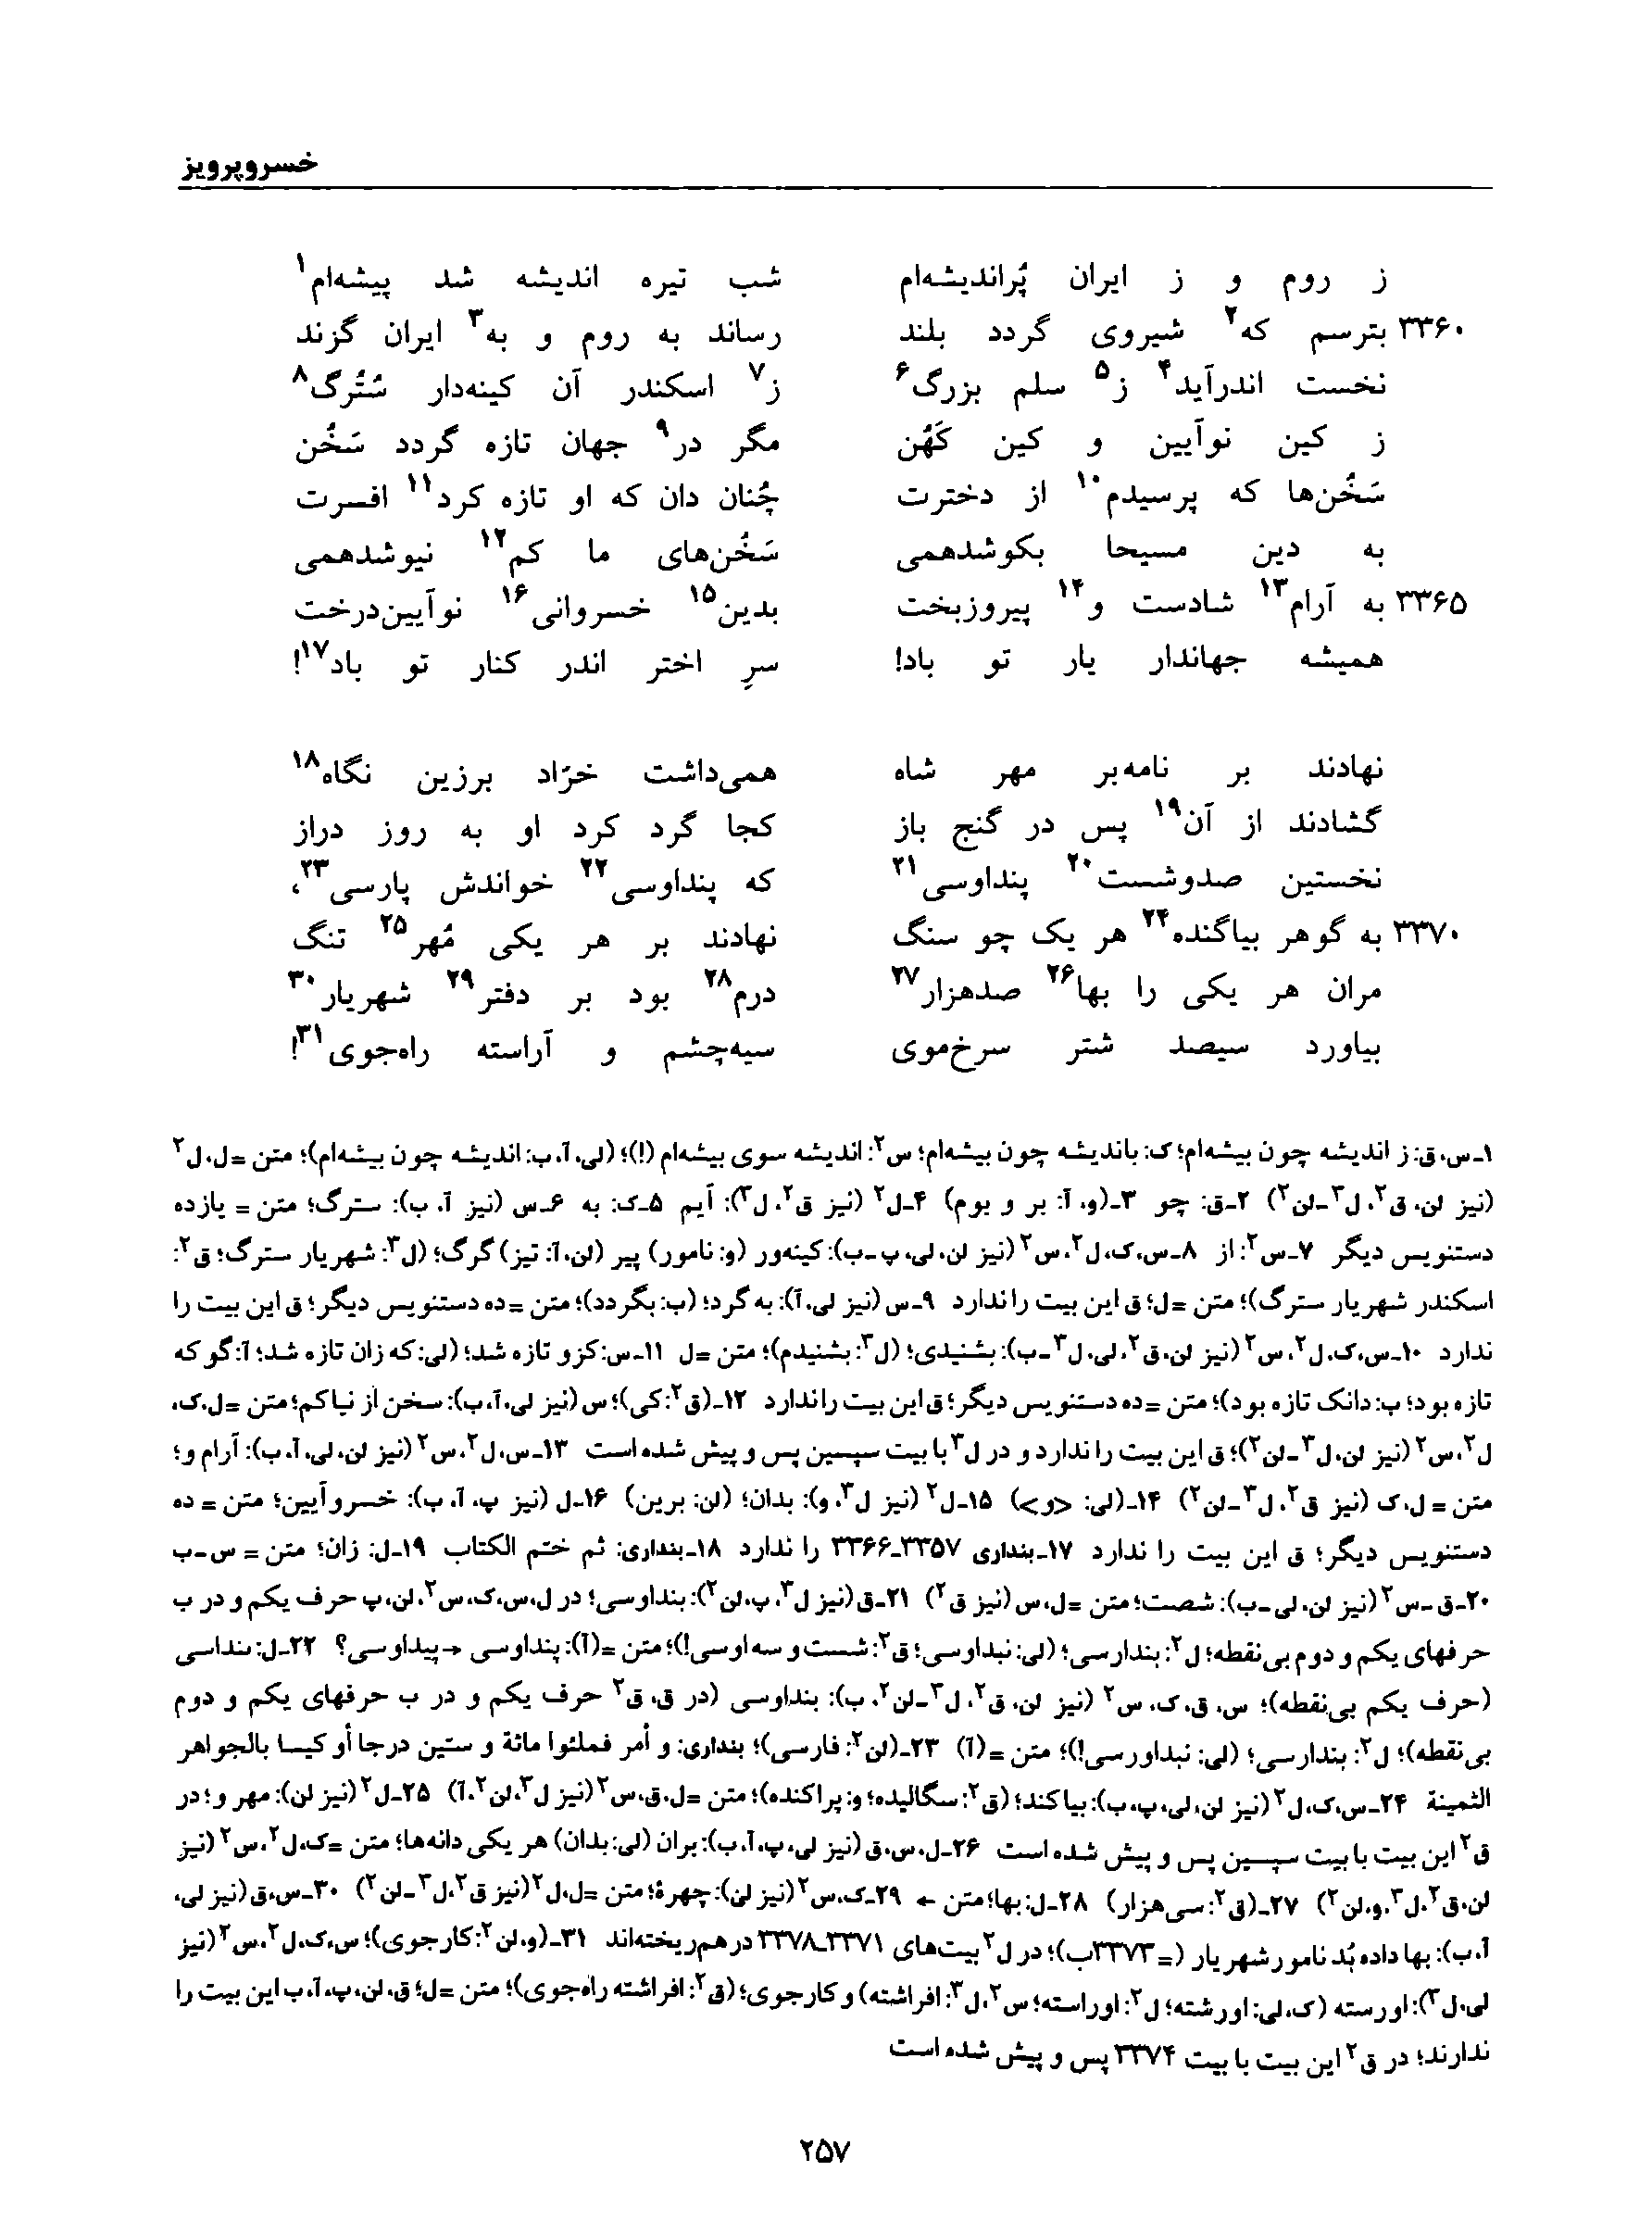 خسروپرویز
ز روم و ز ایران پُراندیشه‌ام شب تیره اندیشه شد پیشه‌ام۱
۳۳۶۰ بترسم که۲ شیروی گردد بلند رساند به روم و به۳ ایران گزند
نخست اندرآید۴ ز۵ سلم بزرگ۶ ز۷ اسکندر آن کینه‌دار سُتُرگ۸
ز کین نوآیین و کین کَهُن مگر در۹ جهان تازه گردد سَخُن
سَخُن‌ها که پرسیدم۱۰ از دخترت چُنان دان که او تازه کرد۱۱ افسرت
به دین مسیحا بکوشدهمی سَخُن‌های ما کم۱۲ نیوشدهمی
۳۳۶۵ به آرام۱۳ شادست و۱۴ پیروزبخت بدین۱۵ خسروانی۱۶ نوآیین‌درخت
همیشه جهاندار یار تو باد! سرِ اختر اندر کنار تو باد۱۷!
نهادند بر نامه‌بر مهر شاه همی‌داشت خرّاد برزین نگاه۱۸
گشادند از آن۱۹ پس در گنج باز کجا گرد کرد او به روز دراز
نخستین صدوشست۲۰ پنداوسی۲۱ که پنداوسی۲۲ خواندش پارسی۲۳،
۳۳۷۰ به گوهر بیاگنده۲۴ هر یک چو سنگ نهادند بر هر یکی مُهر۲۵ تنگ
مران هر یکی را بها۲۶ صدهزار۲۷ درم۲۸ بود بر دفتر۲۹ شهریار۳۰
بیاورد سیصد شتر سرخ‌موی سیه‌چشم و آراسته راه‌جوی۳۱!
۱ـ س، ق: ز اندیشه چون بیشه‌ام؛ ک: باندیشه چون بیشه‌ام؛ س۲: اندیشه سوی بیشه‌ام (!)؛ (لی، آ، ب: اندیشه چون بیشه‌ام)؛ متن = ل، ل۲
(نیز لن، ق۲، ل۳ـ لن۲) ۲ـ ق: چو ۳ـ (و، آ: بر و بوم) ۴ـ ل۲ (نیز ق۲، ل۳): آیم ۵ـ ک: به ۶ـ س (نیز آ، ب): سترگ؛ متن = یازده
دستنویس دیگر ۷ـ س۲: از ۸ـ س، ک، ل۲، س۲ (نیز لن، لی، پ ـ ب): کینه‌ور (و: نامور) پیر (لن، آ: تیز) گرگ؛ (ل۳: شهریار سترگ؛ ق۲:
اسکندر شهریار سترگ)؛ متن = ل؛ ق این بیت را ندارد ۹ـ س (نیز لی، آ): به گرد؛ (ب: بگردد)؛ متن = ده دستنویس دیگر؛ ق این بیت را
ندارد ۱۰ـ س، ک، ل۲، س۲ (نیز لن، ق۲، لی، ل۳ ـ ب): بشنیدی؛ (ل۳: بشنیدم)؛ متن = ل ۱۱ـ س: کزو تازه شد؛ (لی: که زان تازه شد؛ آ: گو که
تازه بود؛ ب: دانک تازه بود)؛ متن = ده دستنویس دیگر؛ ق این بیت را ندارد ۱۲ـ (ق۲: کی)؛ س (نیز لی، آ، ب): سخن از نیا کم؛ متن = ل، ک،
ل۲، س۲ (نیز لن، ل۳ ـ لن۲)؛ ق این بیت را ندارد و در ل۳ با بیت سپسین پس و پیش شده است ۱۳ـ س، ل۲، س۲ (نیز لن، لی، آ، ب): آرام و؛
متن = ل، ک (نیز ق۲، ل۳ ـ لن۲) ۱۴ـ (لی: <و>) ۱۵ـ ل۲ (نیز ل۳، و): بدان؛ (لن: برین) ۱۶ـ ل (نیز پ، آ، ب): خسرو آیین؛ متن = ده
دستنویس دیگر؛ ق این بیت را ندارد ۱۷ـ بنداری ۳۳۵۷ـ۳۳۶۶ را ندارد ۱۸ـ بنداری: ثم ختم الکتاب ۱۹ـ ل: زان؛ متن = س ـ ب
۲۰ـ ق ـ س۲ (نیز لن، لی ـ ب): شصت؛ متن = ل، س (نیز ق۲) ۲۱ـ ق (نیز ل۳، پ، لن۲): بنداوسی؛ در ل، س، ک، س۲، لن، پ حرف یکم و در ب
حرفهای یکم و دوم بی‌نقطه؛ ل۲: بندارسی؛ (لی: نبداوسی؛ ق۲: شست و سه اوسی!)؛ متن = (آ): پنداوسی → پیداوسی؟ ۲۲ـ ل: ٮنداسی
(حرف یکم بی‌نقطه)؛ س، ق، ک، س۲ (نیز لن، ق۲، ل۳ ـ لن۲، ب): بنداوسی (در ق، ق۲ حرف یکم و در ب حرفهای یکم و دوم
بی‌نقطه)؛ ل۲: بندارسی؛ (لی: نبداورسی!)؛ متن = (آ) ۲۳ـ (لن۲: فارسی)؛ بنداری: و أمر فملئوا مائة و ستین درجا أو کیسا بالجواهر
الثمینة ۲۴ـ س، ک، ل۲ (نیز لن، لی، پ، ب): بیاکند؛ (ق۲: سگالیده؛ و: پراکنده)؛ متن = ل، ق، س۲ (نیز ل۳، لن۲، آ) ۲۵ـ ل۲ (نیز لن): مهر و؛ در
ق۲ این بیت با بیت سپسین پس و پیش شده است ۲۶ـ ل، س، ق (نیز لی، پ، آ، ب): بران (لی: بدان) هر یکی دانه‌ها؛ متن = ک، ل۲، س۲ (نیز
لن، ق۲، ل۳، و، لن۲) ۲۷ـ (ق۲: سی‌هزار) ۲۸ـ ل: بها؛ متن ← ۲۹ـ ک، س۲ (نیز لن): چهرهٔ؛ متن = ل، ل۲ (نیز ق۲، ل۳ ـ لن۲) ۳۰ـ س، ق (نیز لی،
آ، ب): بها داده بُد نامور شهریار (= ۳۳۷۳ب)؛ در ل۲ بیت‌های ۳۳۷۱ـ۳۳۷۸ در هم ریخته‌اند ۳۱ـ (و، لن۲: کارجوی)؛ س، ک، ل۲، س۲ (نیز
لی، ل۳): اورسته (ک، لی: اورشته؛ ل۲: اوراسته؛ س۲، ل۳: افراشته) و کارجوی؛ (ق۲: افراشته راه‌جوی)؛ متن = ل؛ ق، لن، پ، آ، ب این بیت را
ندارند؛ در ق۲ این بیت با بیت ۳۳۷۴ پس و پیش شده است
۲۵۷